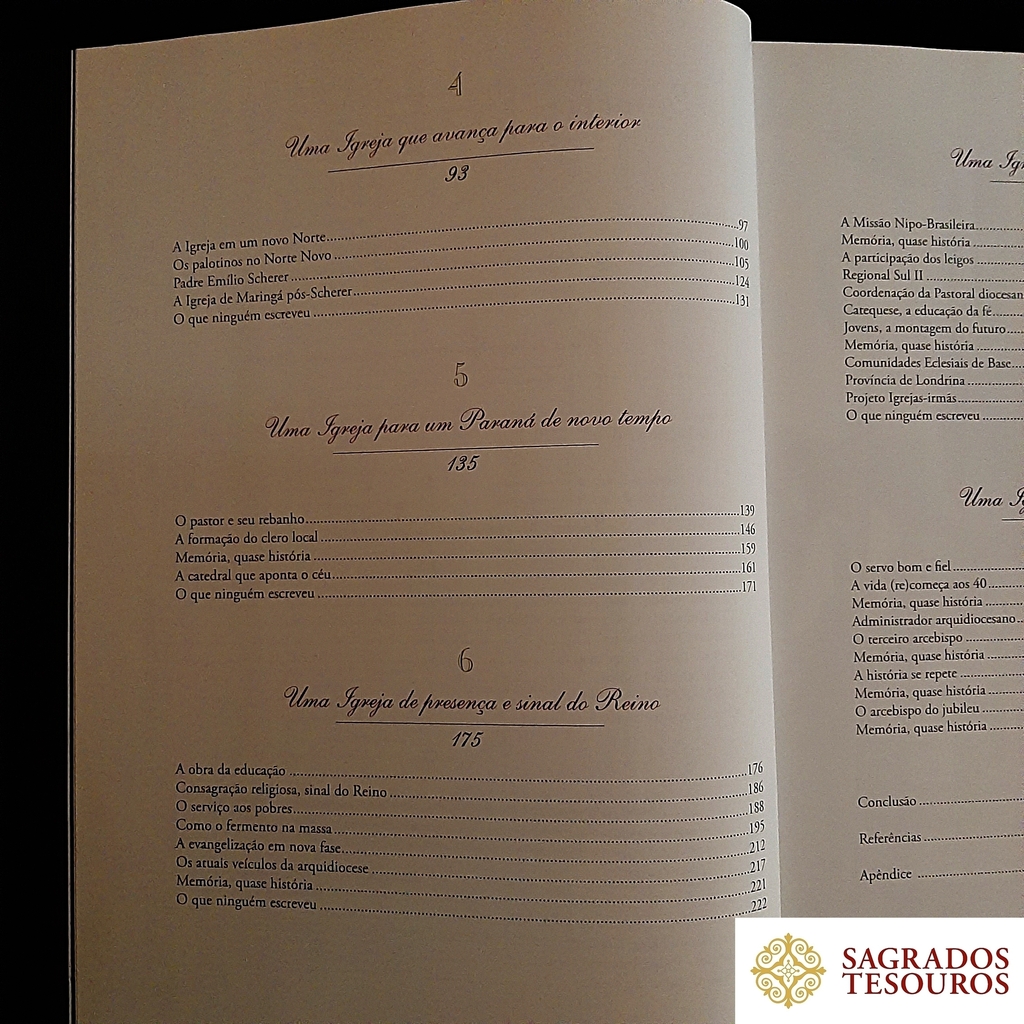 4
Uma Igreja que avança para o interior
93
A Igreja em um novo Norte....97
Os palotinos no Norte Novo....100
Padre Emílio Scherer....105
A Igreja de Maringá pós-Scherer....124
O que ninguém escreveu....131
5
Uma Igreja para um Paraná de novo tempo
135
O pastor e seu rebanho....139
A formação do clero local....146
Memória, quase história....159
A catedral que aponta o céu....161
O que ninguém escreveu....171
6
Uma Igreja de presença e sinal do Reino
175
A obra da educação....176
Consagração religiosa, sinal do Reino....186
O serviço aos pobres....188
Como o fermento na massa....195
A evangelização em nova fase....212
Os atuais veículos da arquidiocese....217
Memória, quase história....221
O que ninguém escreveu....222
Uma
A Missão Nipo-Brasileira....
Memória, quase história....
A participação dos leigos....
Regional Sul II....
Coordenação da Pastoral
Catequese, a educação da fé....
Jovens, a montagem do futuro....
Memória, quase história....
Comunidades Eclesiais de Base....
Província de Londrina....
Projeto Igrejas-irmãs....
O que ninguém escreveu....
Uma
O servo bom e fiel....
A vida (re)começa aos 40....
Memória, quase história....
Administrador arquidiocesano....
O terceiro arcebispo....
Memória, quase história....
A história se repete....
Memória, quase história....
O arcebispo do jubileu....
Memória, quase história....
Conclusão....
Referências....
Apêndice....
SAGRADOS
TESOUROS